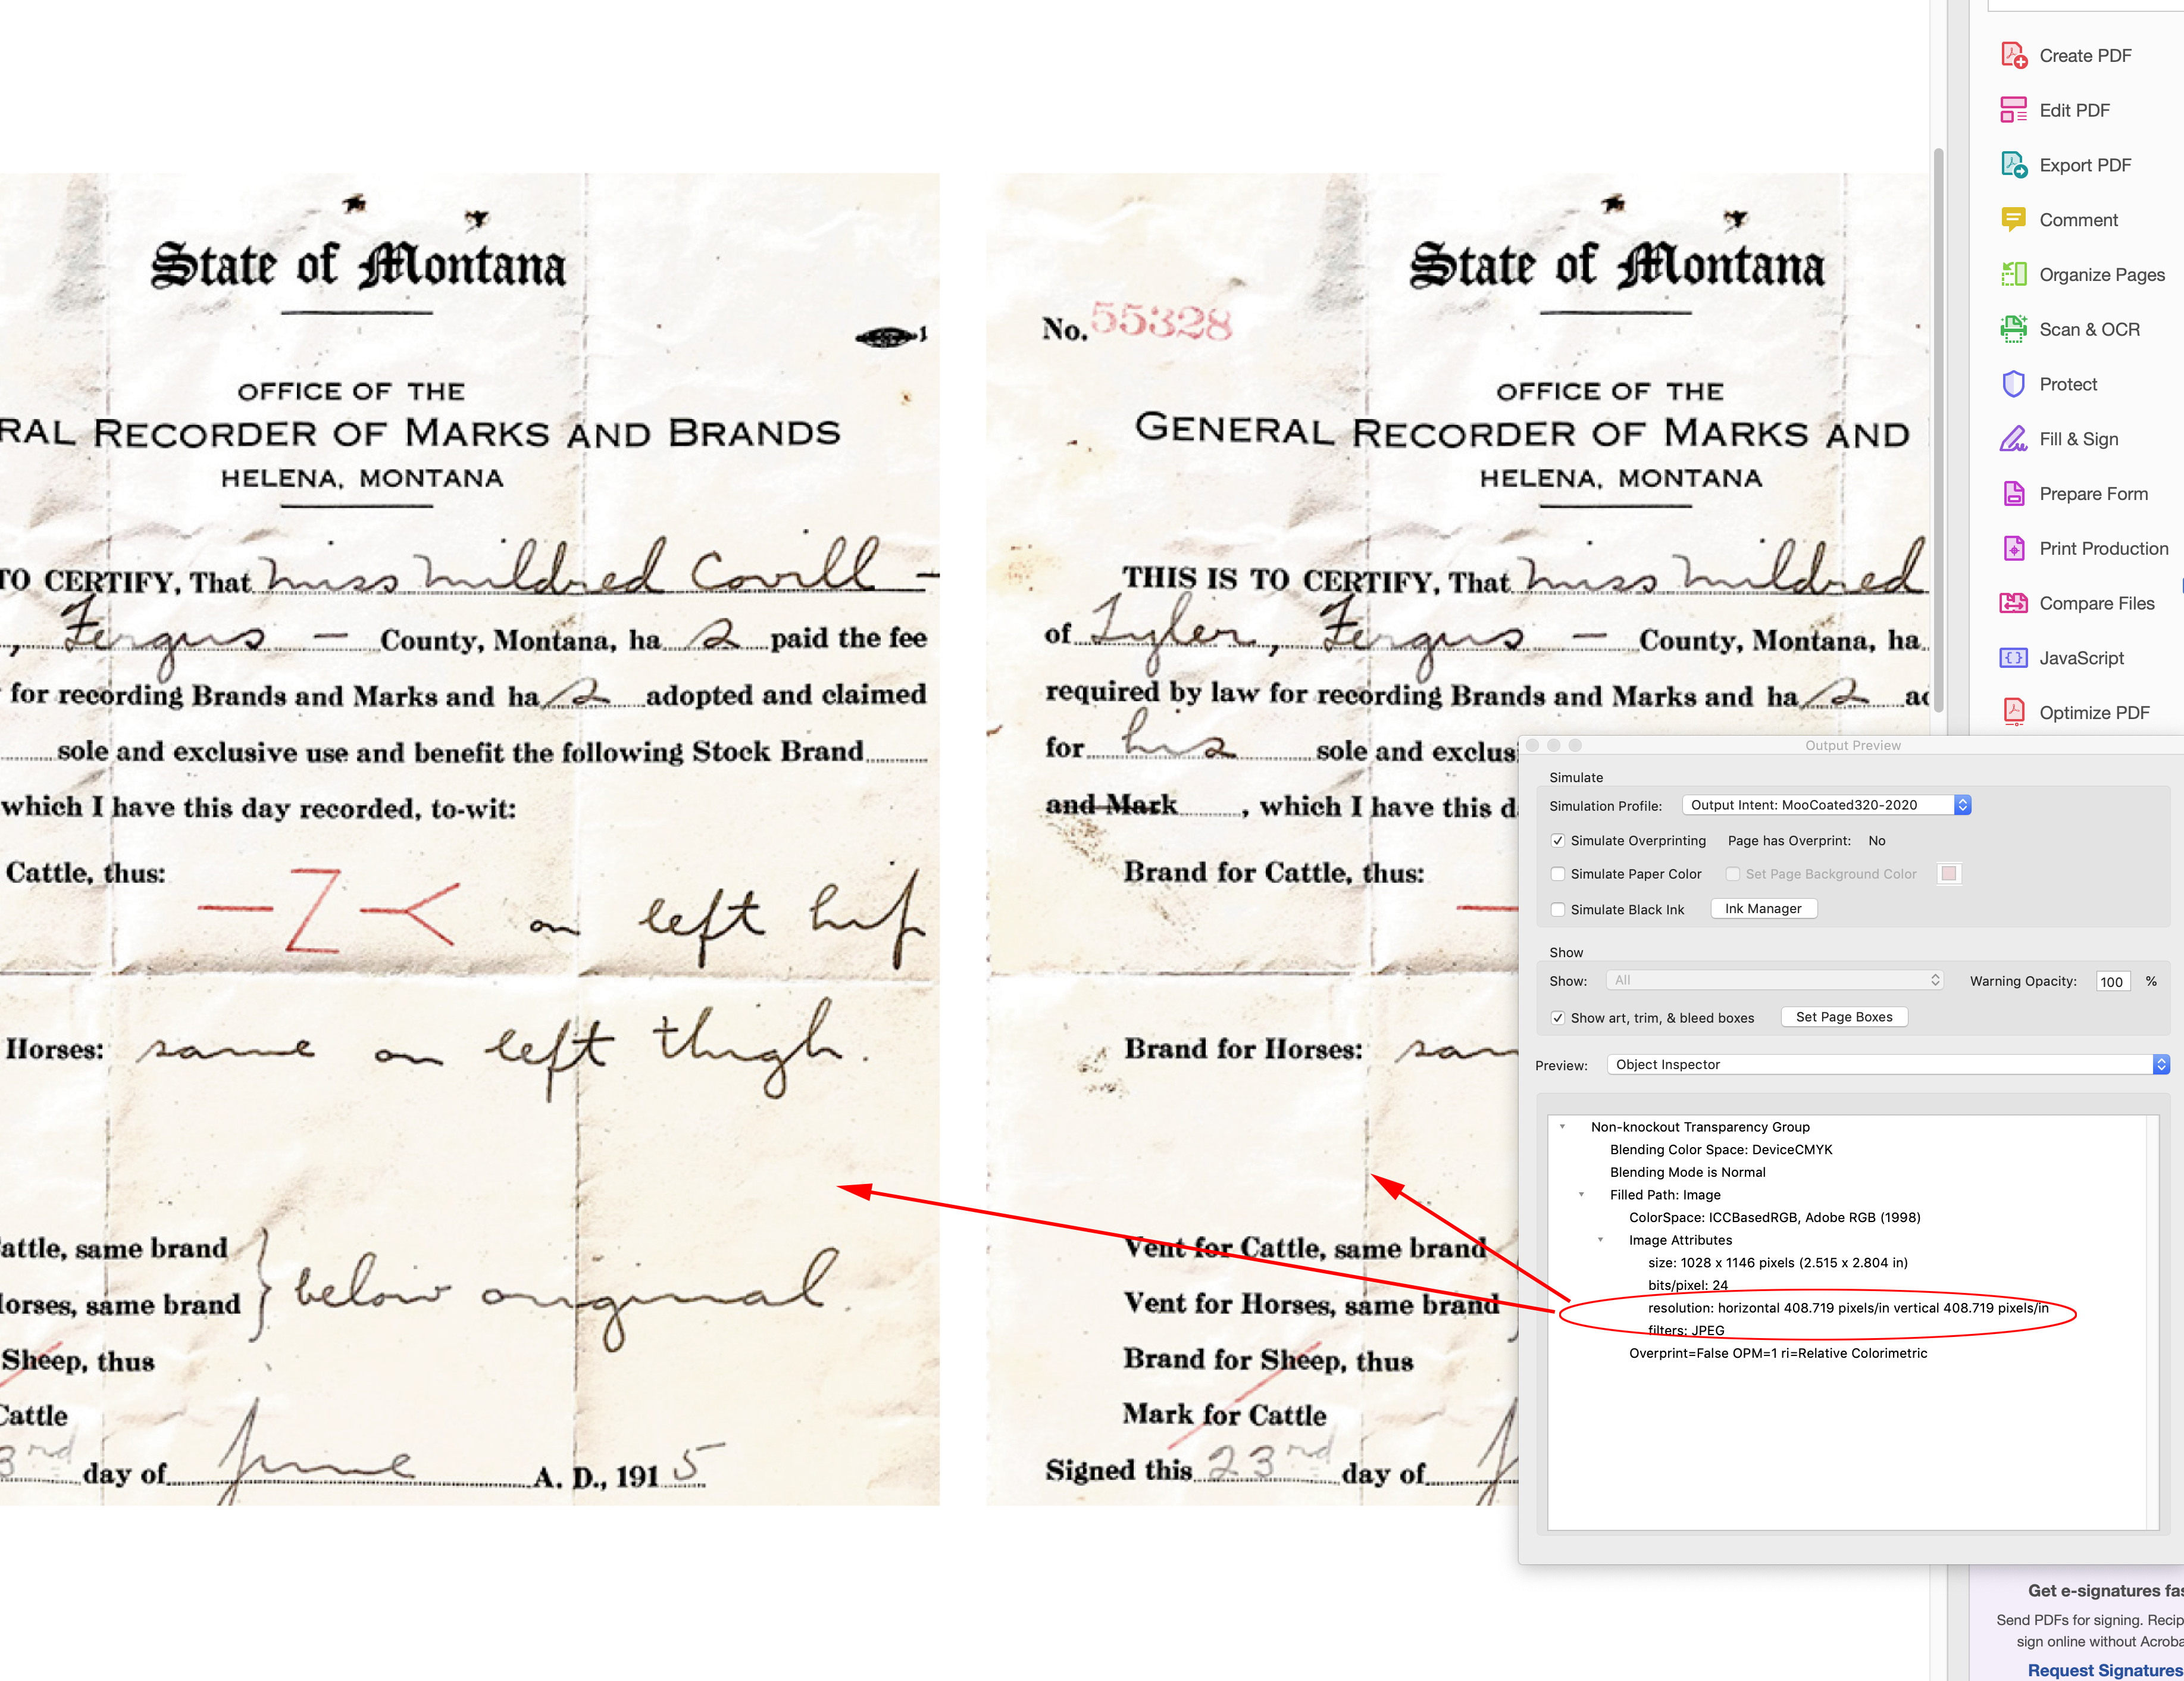 State of Montana
1
OFFICE OF THE
RAL RECORDER OF MARKS AND BRANDS
HELENA, MONTANA
TO CERTIFY, That Miss Mildred Covill —
, Fergus — County, Montana, ha s paid the fee
for recording Brands and Marks and ha s adopted and claimed
sole and exclusive use and benefit the following Stock Brand
which I have this day recorded, to-wit:
Cattle, thus:
on left hip
Horses: same on left thigh.
attle, same brand
orses, same brand
} below original.
Sheep, thus
Cattle
3rd day of June A. D., 1915
State of Montana
No. 55328
OFFICE OF THE
GENERAL RECORDER OF MARKS AND
HELENA, MONTANA
THIS IS TO CERTIFY, That Miss Mildred
of Tyler, Fergus — County, Montana, ha
required by law for recording Brands and Marks and ha s ad
for his sole and exclus
and Mark, which I have this d
Brand for Cattle, thus:
Brand for Horses: sam
Vent for Cattle, same brand
Vent for Horses, same brand
Brand for Sheep, thus
Mark for Cattle
Signed this 23rd day of
Create PDF
Edit PDF
Export PDF
Comment
Organize Pages
Scan & OCR
Protect
Fill & Sign
Prepare Form
Print Production
Compare Files
JavaScript
Optimize PDF
Output Preview
Simulate
Simulation Profile: Output Intent: MooCoated320-2020
Simulate Overprinting Page has Overprint: No
Simulate Paper Color Set Page Background Color
Simulate Black Ink Ink Manager
Show
Show: All Warning Opacity: 100 %
Show art, trim, & bleed boxes Set Page Boxes
Preview: Object Inspector
Non-knockout Transparency Group
Blending Color Space: DeviceCMYK
Blending Mode is Normal
Filled Path: Image
ColorSpace: ICCBasedRGB, Adobe RGB (1998)
Image Attributes
size: 1028 x 1146 pixels (2.515 x 2.804 in)
bits/pixel: 24
resolution: horizontal 408.719 pixels/in vertical 408.719 pixels/in
filters: JPEG
Overprint=False OPM=1 ri=Relative Colorimetric
Get e-signatures fas
Send PDFs for signing. Recip
sign online without Acroba
Request Signatures